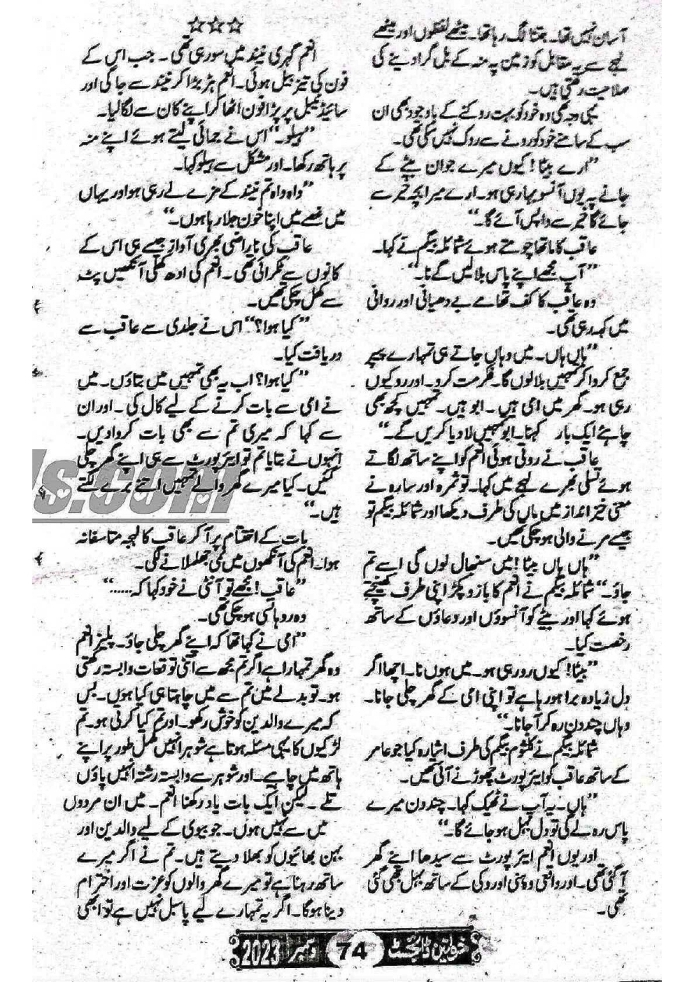 آسان نہیں تھا۔ جتنا لگ رہا تھا۔ بیٹھے لفظوں اور بیٹھے
لہجے سے یہ مقابل کو زمین پہ منہ کے بل گرا دینے کی
صلاحیت رکھتی ہیں۔
یہی وجہ تھی وہ خود کو بہت روکنے کے باوجود بھی ان
سب کے سامنے خود کو رونے سے روک نہیں سکی تھی۔
”ارے بیٹا! کیوں میرے جوان بیٹے کے
جانے پہ یوں آنسو بہا رہی ہو۔ ارے میرا بچہ خیر سے
جائے گا خیر سے واپس آئے گا۔“
عاقب کا ماتھا چومتے ہوئے شمائلہ بیگم نے کہا۔
”آپ مجھے اپنے پاس بلا لیں گے نا۔“
وہ عاقب کا کف تھامے بے دھیانی اور روانی
میں کہہ رہی تھی۔
”ہاں ہاں۔ میں وہاں جاتے ہی تمہارے پیپر
جمع کروا کر تمہیں بلا لوں گا۔ فکر مت کرو۔ اور رو کیوں
رہی ہو۔ گھر میں امی ہیں۔ ابو ہیں۔ تمہیں کچھ بھی
چاہئے ایک بار کہنا۔ ابو تمہیں لا دیا کریں گے۔“
عاقب نے روتی ہوئی انعم کو اپنے ساتھ لگاتے
ہوئے تسلی بھرے لہجے میں کہا۔ تو نمرہ اور سارہ نے
معنی خیز انداز میں ماں کی طرف دیکھا اور شمائلہ بیگم تو
جیسے مرنے والی ہو چکی تھیں۔
”ہاں ہاں بیٹا! میں سنبھال لوں گی اسے تم
جاؤ۔“ شمائلہ بیگم نے انعم کا بازو پکڑ اپنی طرف کھینچتے
ہوئے کہا اور بیٹے کو آنسوؤں اور دعاؤں کے ساتھ
رخصت کیا۔
”بیٹا! کیوں رو رہی ہو۔ میں ہوں نا۔ اچھا اگر
دل زیادہ برا ہو رہا ہے تو اپنی امی کے گھر چلی جانا۔
وہاں چند دن رہ کر آ جانا۔“
شمائلہ بیگم نے کلثوم بیگم کی طرف اشارہ کیا جو عامر
کے ساتھ عاقب کو ایئرپورٹ چھوڑنے آئی تھیں۔
”ہاں۔ یہ آپ نے ٹھیک کہا۔ چند دن میرے
پاس رہ لے گی تو دل بہل ہو جائے گا۔“
اور یوں انعم ایئرپورٹ سے سیدھا اپنے گھر
آ گئی تھی۔ اور واقعی وہ ہنی اور وکی کے ساتھ بہل بھی گئی
تھی۔
☆☆☆
انعم گہری نیند میں سو رہی تھی۔ جب اس کے
فون کی تیز بیل ہوئی۔ انعم ہڑبڑا کر نیند سے جاگی اور
سائیڈ ٹیبل پر پڑا فون اٹھا کر اپنے کان سے لگا لیا۔
”ہیلو۔“ اس نے جمائی لیتے ہوئے اپنے منہ
پر ہاتھ رکھا۔ اور مشکل سے ہیلو کہا۔
”واہ واہ تم نیند کے مزے لے رہی ہو اور یہاں
میں غصے میں اپنا خون جلا رہا ہوں۔“
عاقب کی ناراضی بھری آواز جیسے ہی اس کے
کانوں سے ٹکرائی تھی۔ انعم کی ادھ کھلی آنکھیں پٹ
سے کھل چکی تھیں۔
”کیا ہوا؟“ اس نے جلدی سے عاقب سے
دریافت کیا۔
”کیا ہوا؟ اب یہ بھی تمہیں میں بتاؤں۔ میں
نے امی سے بات کرنے کے لیے کال کی۔ اور ان
سے کہا کہ میری تم سے بھی بات کروا دیں۔
انہوں نے بتایا تم تو ایئرپورٹ سے ہی اپنے گھر چلی
گئیں۔ کیا میرے گھر والے تمہیں اتنے برے لگتے
ہیں۔“
بات کے اختتام پر آ کر عاقب کا لہجہ متاسفانہ
ہوا۔ انعم کی آنکھوں میں نمی جھلملانے لگی۔
”عاقب! مجھے تو آنٹی نے خود کہا کہ......“
وہ روہانسی ہو چکی تھی۔
”امی نے کہا تھا کہ اپنے گھر چلی جاؤ۔ پلیز انعم
وہ گھر تمہارا ہے اگر تم مجھ سے اتنی توقعات وابستہ رکھتی
ہو۔ تو بدلے میں تم سے میں چاہتا ہی کیا ہوں۔ بس
کہ میرے والدین کو خوش رکھو۔ اور تم کیا کرتی ہو۔ تم
لڑکیوں کا یہی مسئلہ ہوتا ہے شوہر انہیں مکمل طور پر اپنے
ہاتھ میں چاہیے۔ اور شوہر سے وابستہ رشتہ انہیں پاؤں
تلے۔ لیکن ایک بات یاد رکھنا انعم۔ میں ان مردوں
میں سے نہیں ہوں۔ جو بیوی کے لیے والدین اور
بہن بھائیوں کو بھلا دیتے ہیں۔ تم نے اگر میرے
ساتھ رہنا ہے تو میرے گھر والوں کو عزت اور احترام
دینا ہوگا۔ اگر یہ تمہارے لیے پاسبل نہیں ہے تو ابھی
ds.com
خواتین ڈائجسٹ 74 دسمبر 2023